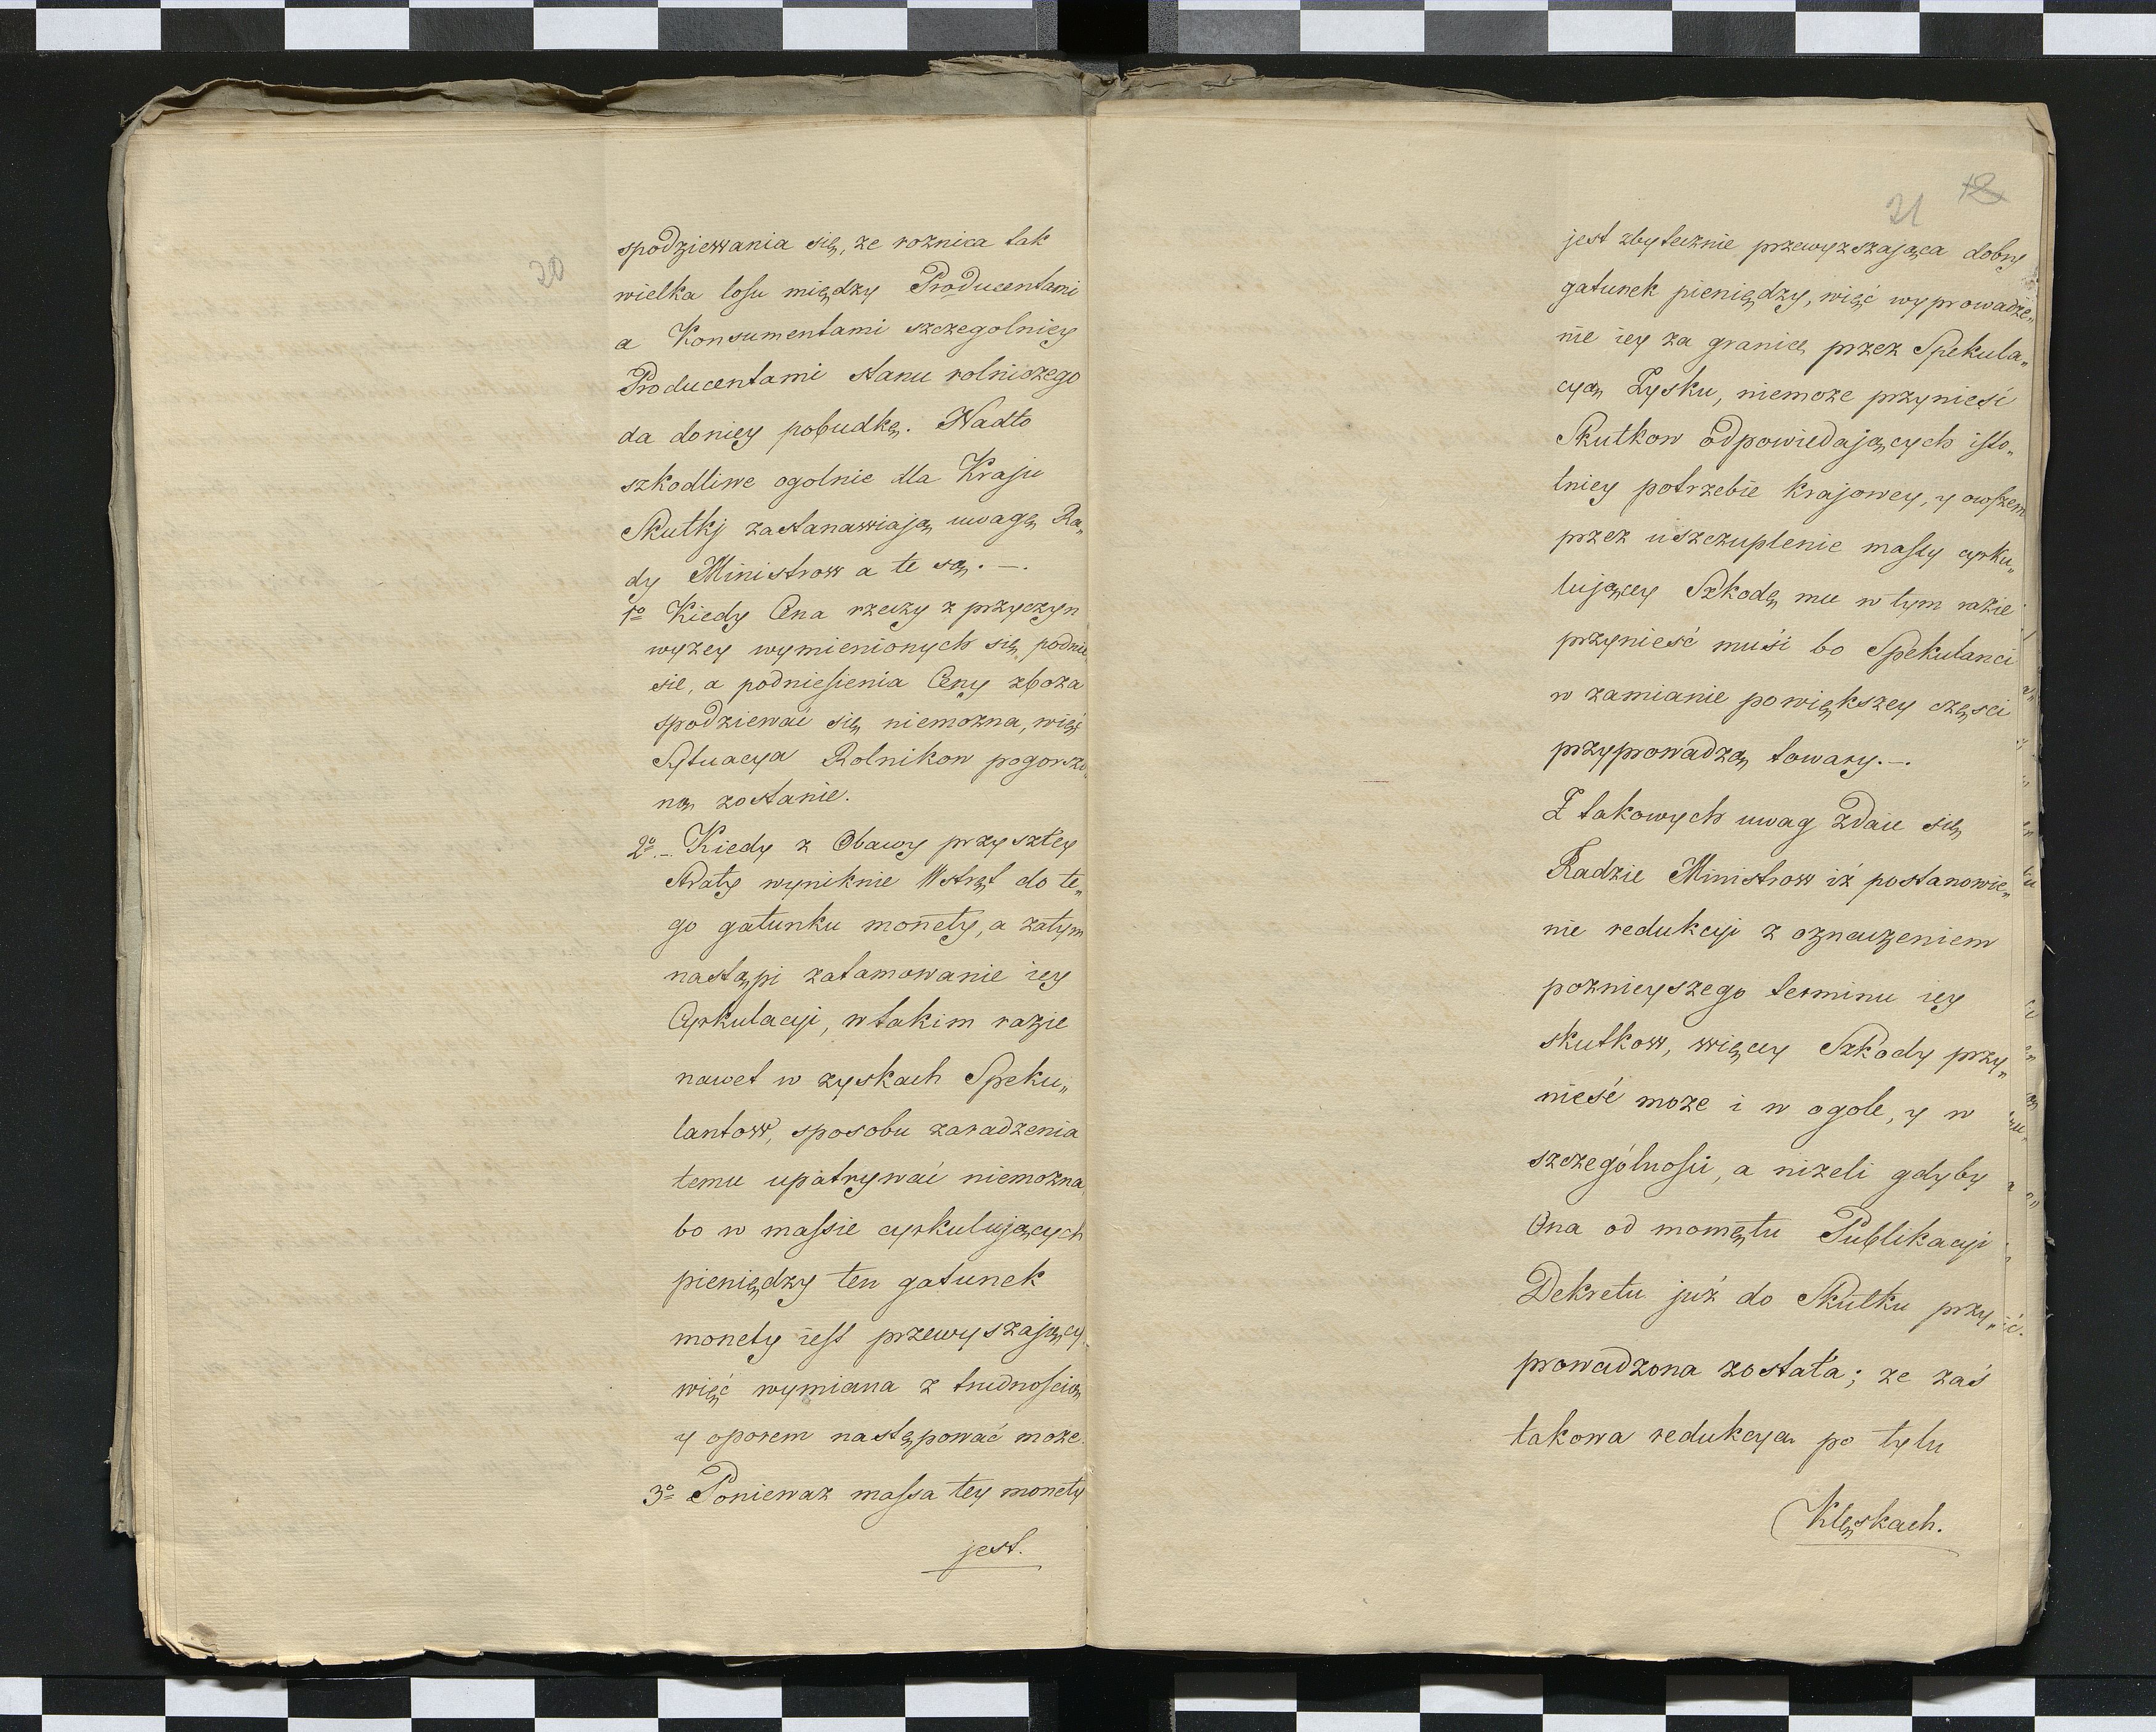 20
spodziewania się, ze roznica tak
wielka losu między Producentami
a Konsumentami szczegolniey
Producentami stanu rolniczego
da doniey pobudkę. Nadto
szkodliwe ogolnie dla Kraju
Skutkj zastanawiają uwagę Ra„
dy Ministrow a te są. —.
1º Kiedy Cena rzeczy z przyczyn
wyzey wymienionych się podnie
sie, a podniesienia Ceny zboza
spodziewać się niemozna, więc
Sytuacya Rolnikow pogorszo„
ną zostanie.
2º — Kiedy z Obawy przyszłey
Straty wyniknie Wstręt do te„
go gatunku monety, a zatym
nastąpi zatamowanie iey
Cyrkulacyi, w takim razie
nawet w zyskach Speku„
lantow, sposobu zaradzenia
temu upatrywać niemozna
bo w massie cyrkulujących
pieniędzy ten gatunek
monety iest przewyszający
więc wymiana z trudnoscią
y oporem następować może.
3º Poniewaz massa tey monety
jest.
21 12
jest zbytecznie przewyzszająca dobry
gatunek pieniędzy, więć wyprowadze„
nie iey za granicę przez Spekula„
cyą Zysku, niemoze przynieść
Skutkow odpowiedających isto„
tniey potrzebie krajowey, y owszem
przez uszczuplenie massy cyrku„
lującey Szkodę mu w tym razie
przynieść muśi bo Spekulanci
w zamianie powiększey częsci
przyprowadzą towary. —.
Z takowych uwag Zdaie się
Radzie Ministrow iż postanowie„
nie redukcyi z oznaczeniem
poznieyszego terminu iey
skutkow, więcey Szkody przy„
nieść moze i w ogole, y w
szczególnosci, a nizeli gdyby
Ona od momętu Publikacyi
Dekretu już do Skutku przy„
prowadzona została; ze zaś
takowa redukcya po tylu
Klęskach.